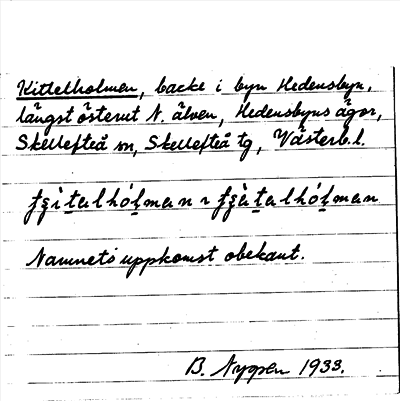 Kittelholmen, backe i byn Hedensbyn,
längst österut N. älven, Hedensbyns ägor,
Skellefteå sn, Skellefteå tg, Västerb. l.
Namnets uppkomst obekant.
B. Nygren 1933.